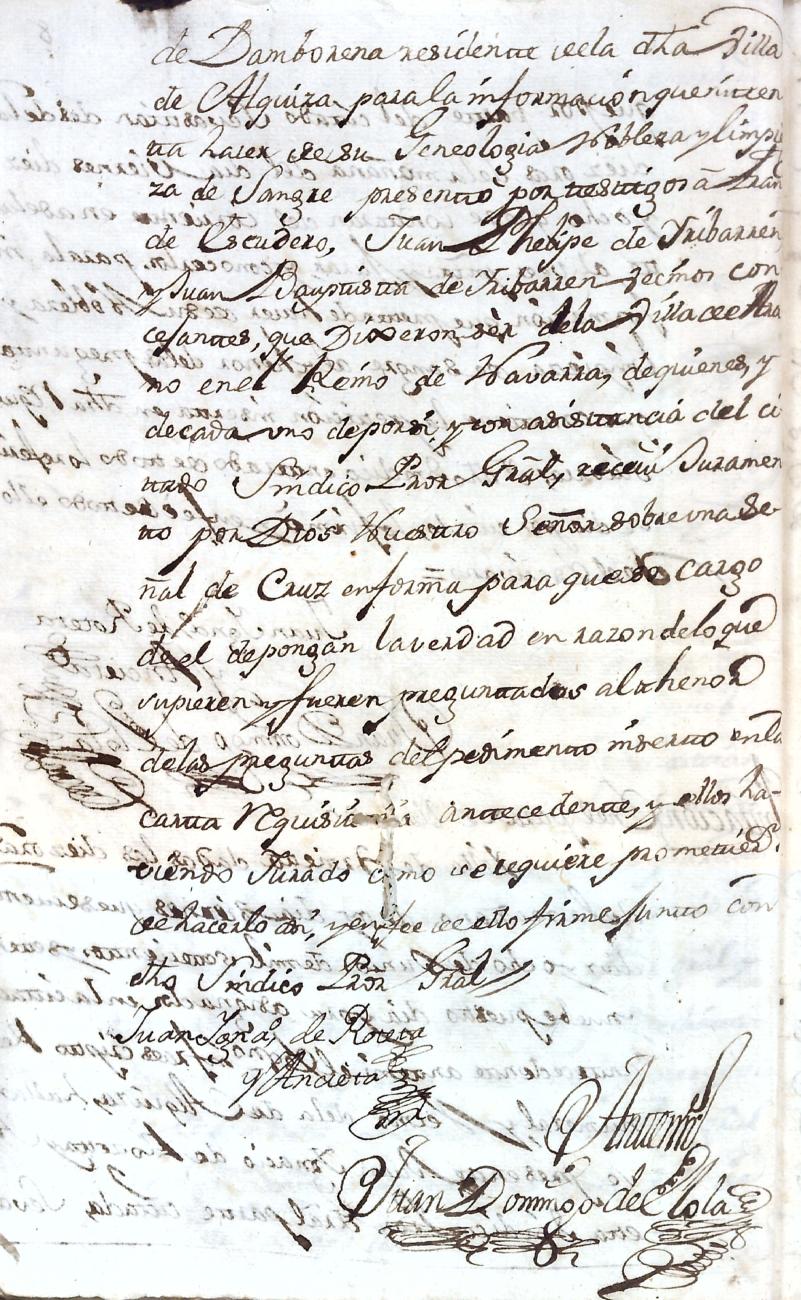 de Damborena residente de la dha Villa
de Alquiza para la informacion que inten
ta hacer de su Geneologia Nobleza y limpie
za de Sangre presentto por testigos a Fran
de Escudero, Juan Phelipe de Iribarren,
y Juan Bauptista de Iribarren vecinos con
cejantes, que Dixeron ser de la Villa de Ara
no en el Reino de Navarra, de quienes, y
de cada uno de por si, y con asistencia del ci
tado Sindico Pror Gral, recevi Juramen
to por Dios Nuestro Señor sobre una Se
ñal de Cruz en forma para que so cargo
de el depongan la verdad en razon de lo que
supieren y fueren preguntados al thenor
de las preguntas del pedimento inserto en la
carta requisitoria antecedente, y ellos ha-
viendo Jurado como se requiere prometier.n
de hacerlo asi, y en fee de ello firme Junto con
dho Sindico Pror Gral
Juan Ign.o de Roteta
y Ancieta
Antemi
Juan Domingo de